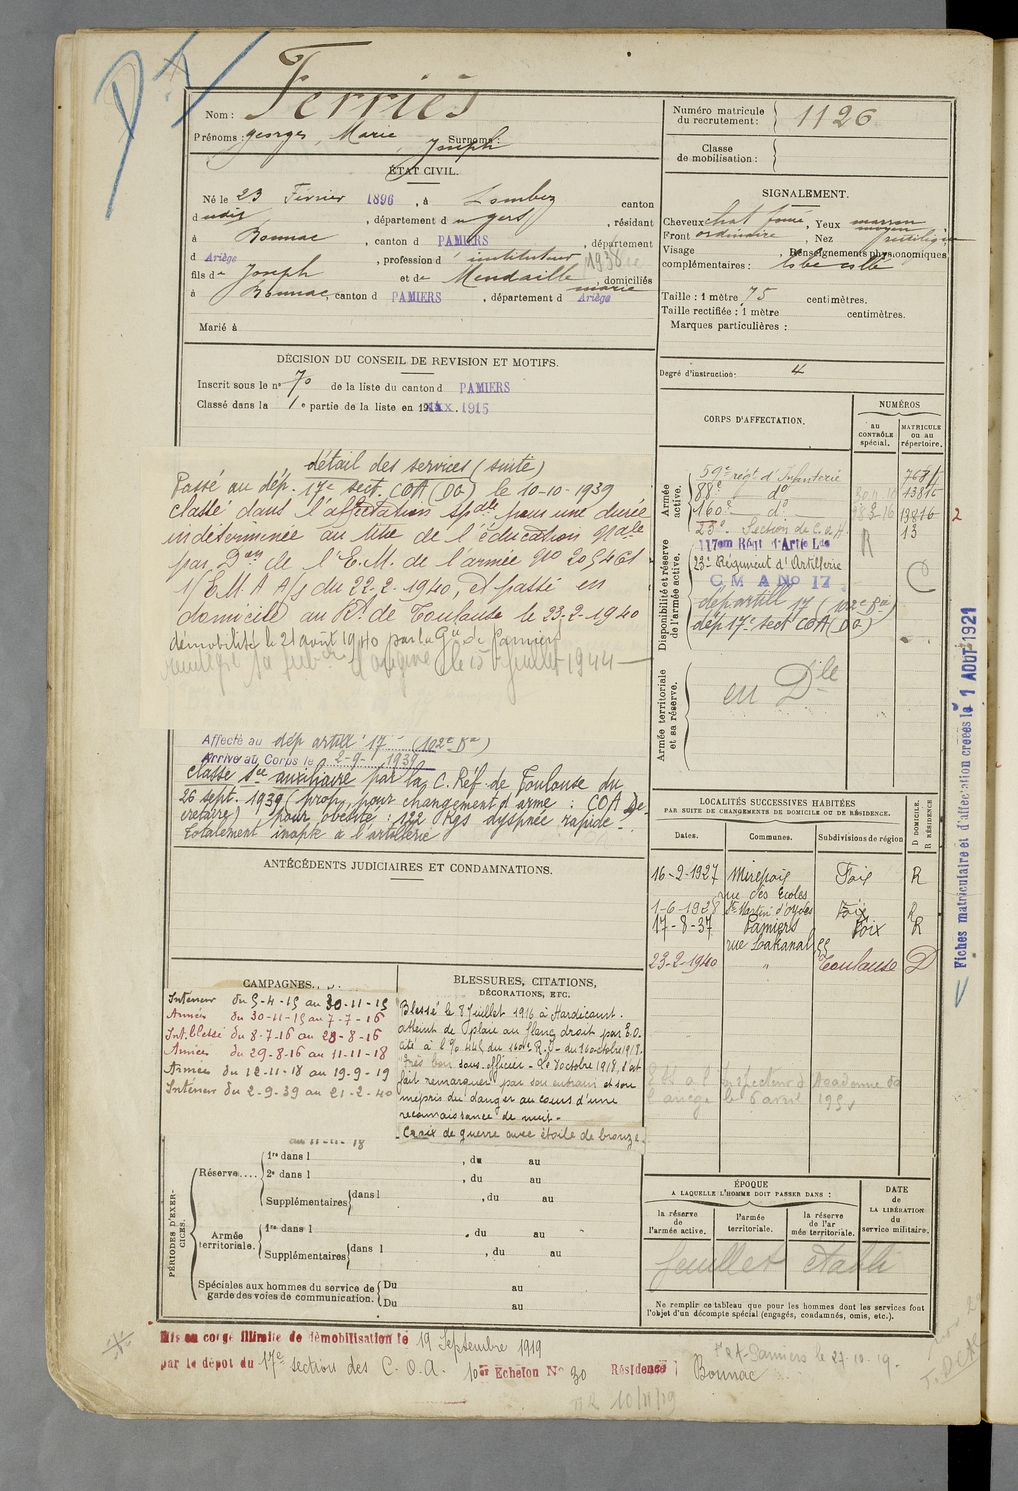 Nom : Ferriès
Prénoms : Georges, Marie, Joseph Surnoms :
Numéro matricule du recrutement : 1126
Classe de mobilisation :
ÉTAT CIVIL.
Né le 23 Février 1896, à Lombez canton
dudit, département du Gers, résidant
à Bonnac, canton d PAMIERS, département
d Ariège, profession d'instituteur 1938
fils de Joseph et de Mendaille marie, domiciliés
à Bonnac, canton d PAMIERS, département d Ariège
Marié à
SIGNALEMENT.
Cheveux chat foncé, Yeux marron
Front ordinaire, Nez moyen
Visage, Renseignements physionomiques
complémentaires :
Taille : 1 mètre 75 centimètres.
Taille rectifiée : 1 mètre centimètres.
Marques particulières :
Degré d'instruction : 4
DÉCISION DU CONSEIL DE REVISION ET MOTIFS.
Inscrit sous le n° 70 de la liste du canton d PAMIERS
Classé dans la 1e partie de la liste en 1915
détail des services (suite)
Passé au dép. 17e sect. COA (Da) le 10-10-1939
classé dans l'affectation spdle pour une durée
indéterminée au titre de l'éducation Nale
par Don de l'E.M. de l'armée No 205461
1/E.M.A A/s du 22-2-1940, et passé en
domicile au Rt de Toulouse le 23-2-1940
démobilisé le 21 août 1940 par la Gie de Pamiers
le 15 juillet 1944
Affecté au dép artill 17 (102e Bie)
Arrivé au Corps le 2-9-1939
Classé sce auxiliaire par la C. Réf. de Toulouse du
26 sept. 1939 (prop. pour changement d'arme : COA Se-
crétaire) pour obésité : 122 Kgs dyspnée rapide -
totalement inapte à l'artillerie
CORPS D'AFFECTATION.
NUMÉROS
au contrôle spécial.
matricule ou au répertoire.
Armée active.
59e régt d'Infanterie
88e do 13816
160e do 13816
23e Section de C.O.A 13
Disponibilité et réserve de l'armée active.
117em Régt d'Artie Lde
23e Régiment d'Artillerie
C M A No 17
dép artill 17 (102e Bie)
dép 17e sect COA (Da)
Armée territoriale et sa réserve.
en Dle
ANTÉCÉDENTS JUDICIAIRES ET CONDAMNATIONS.
LOCALITÉS SUCCESSIVES HABITÉES
PAR SUITE DE CHANGEMENTS DE DOMICILE OU DE RÉSIDENCE.
Dates. Communes. Subdivisions de région D DOMICILE. R RÉSIDENCE
16-2-1927 Mirepoix Foix R
rue des Ecoles
1-6-1928 St Martin d'Oydes Foix R
17-8-37 Pamiers Foix R
rue Lakanal
23-2-1940 " Toulouse D
Inspecteur d'Académie
Fiches matriculaire et d'affectation créées le 1 AOUT 1921
CAMPAGNES.
Intérieur du 9-4-15 au 30-11-15
Armées du 30-11-15 au 7-7-16
Int. blessé du 8-7-16 au 28-8-16
Armées du 29-8-16 au 11-11-18
Armées du 12-11-18 au 19-9-19
Intérieur du 2-9-39 au 21-2-40
au 11-11-18
BLESSURES, CITATIONS,
DÉCORATIONS, ETC.
Blessé le 8 Juillet 1916 à Hardicourt.
atteint de plaie au flanc droit par E.O.
cité à l'o no 445 du 160e R.I. du 16 octobre 1918.
Très bon sous-officier - Le 7 octobre 1918, s'est
fait remarquer par son entrain et son
mépris du danger au cours d'une
reconnaissance de nuit -
Croix de guerre avec étoile de bronze.
PÉRIODES D'EXERCICES.
Réserve.... 1re dans l , du au
2e dans l , du au
Supplémentaires dans l , du au
Armée territoriale. 1re dans l , du au
Supplémentaires dans l , du au
Spéciales aux hommes du service de Du au
garde des voies de communication. Du au
ÉPOQUE
A LAQUELLE L'HOMME DOIT PASSER DANS :
la réserve de l'armée active.
l'armée territoriale.
la réserve de l'armée territoriale.
DATE DE LA LIBÉRATION du service militaire.
feuillet établi
Ne remplir ce tableau que pour les hommes dont les services font
l'objet d'un décompte spécial (engagés, condamnés, omis, etc.).
Mis en congé illimité de démobilisation le 19 Septembre 1919
par le dépôt du 17e section des C.O.A. 10e Echelon No 30 Résidence : Bonnac
Pamiers le 27-10-19.
10/11/19